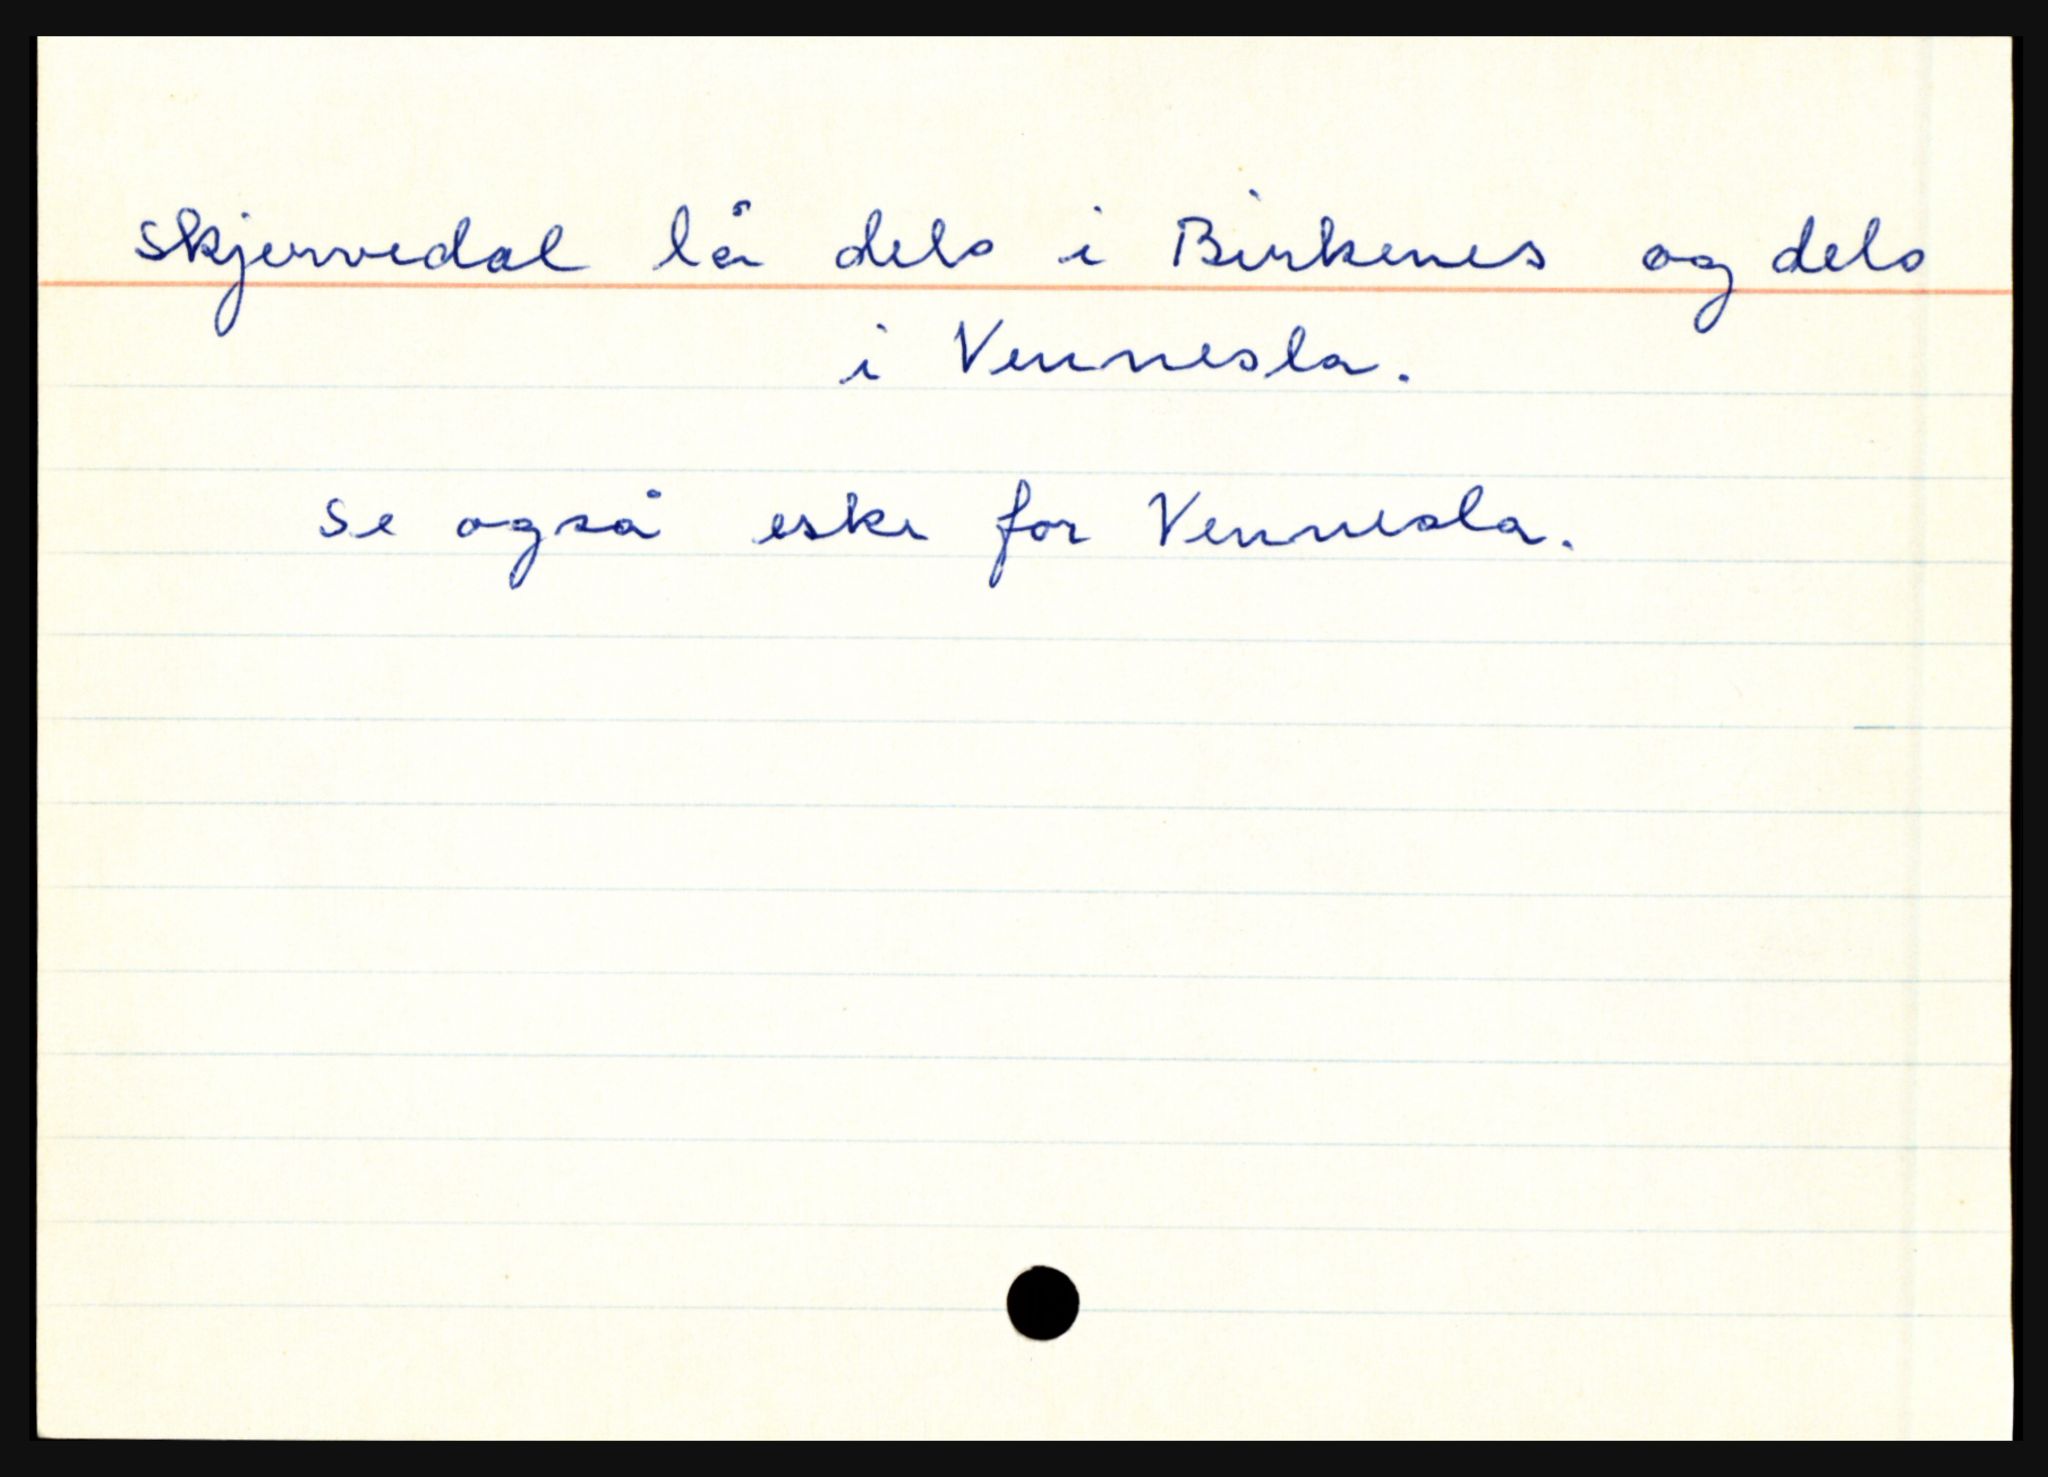 Skjervedal lå dels i Birkenes og dels
i Vennesla.
Se også eske for Vennesla.